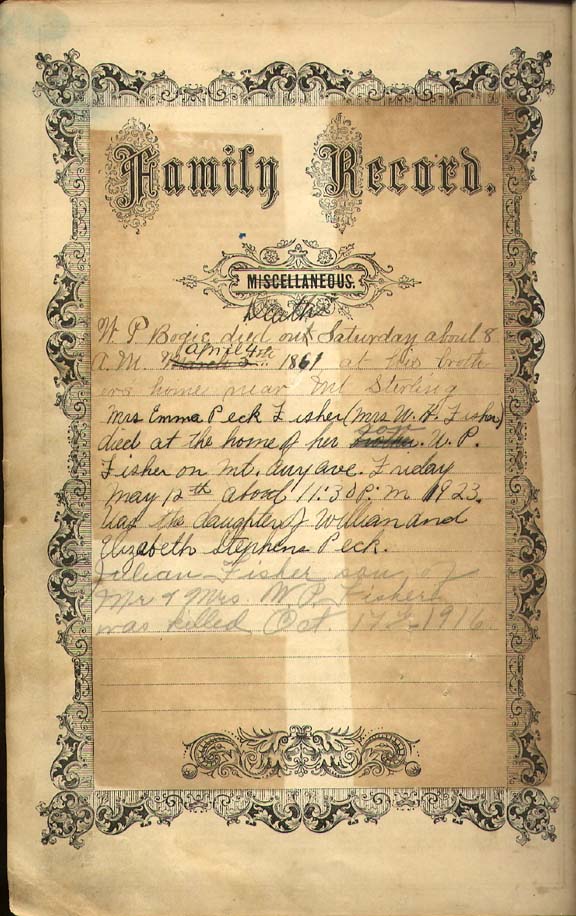 Family Record.
MISCELLANEOUS.
Deaths
W. P Bogie died on Saturday about 8
A. M. March April 4th 1861 at his broth
ers home near Mt Sterling
Mrs Emma Peck Fisher (Mrs W. H. Fisher)
died at the home of her brother son W. P.
Fisher on Mt. Airy ave. Friday
may 12th about 11:30 P. m. 1923.
Was the daughter of William and
Elizabeth Stephens Peck.
Fisher son of
Mr & Mrs. W P. Fisher
was killed Oct. 17 1916.